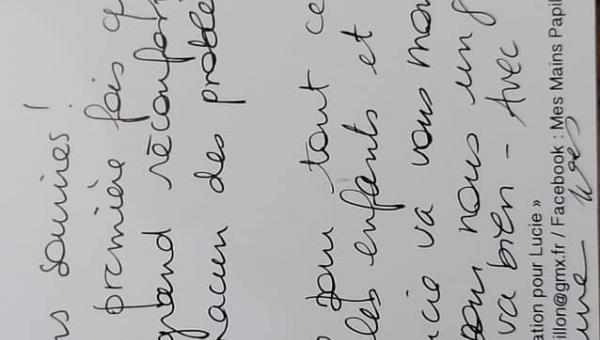 ns sourires !
première fois q
grand réconfort
hacun des problè
pour tout ce
les enfants et
cie va vous mon
pour nous un g
va bien - Avec
ation pour Lucie »
illon@gmx.fr / Facebook : Mes Mains Papil